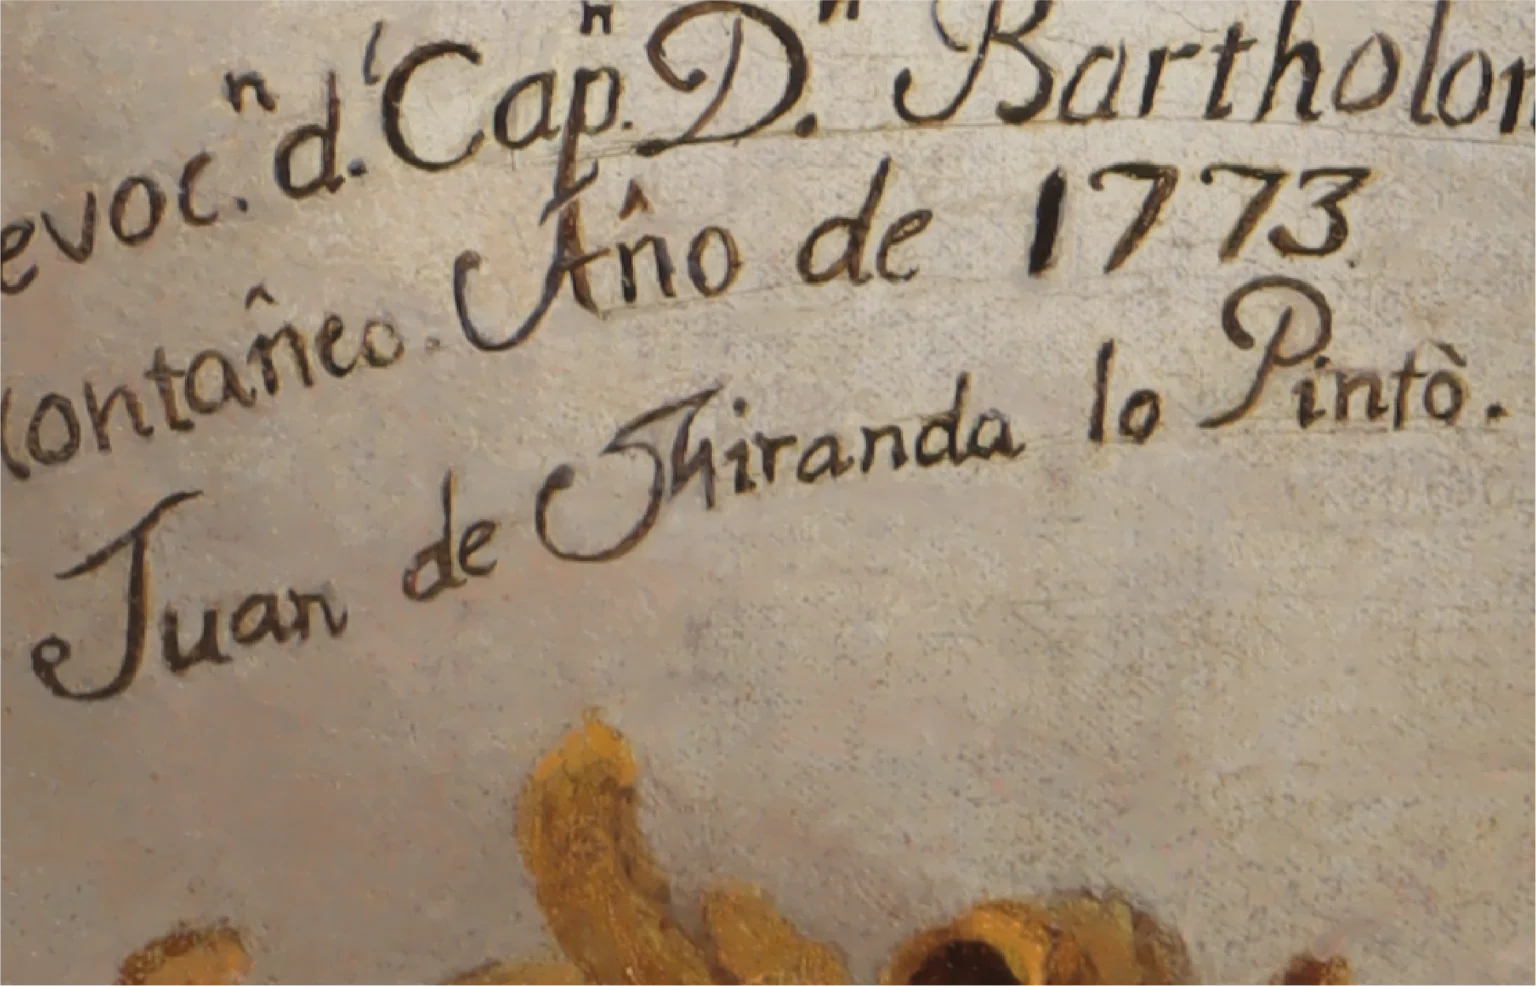 evoc.ⁿ d.ˡ Cap.ⁿ D.ⁿ Bartholom
ontañeo. Año de 1773
Juan de Miranda lo Pintò.